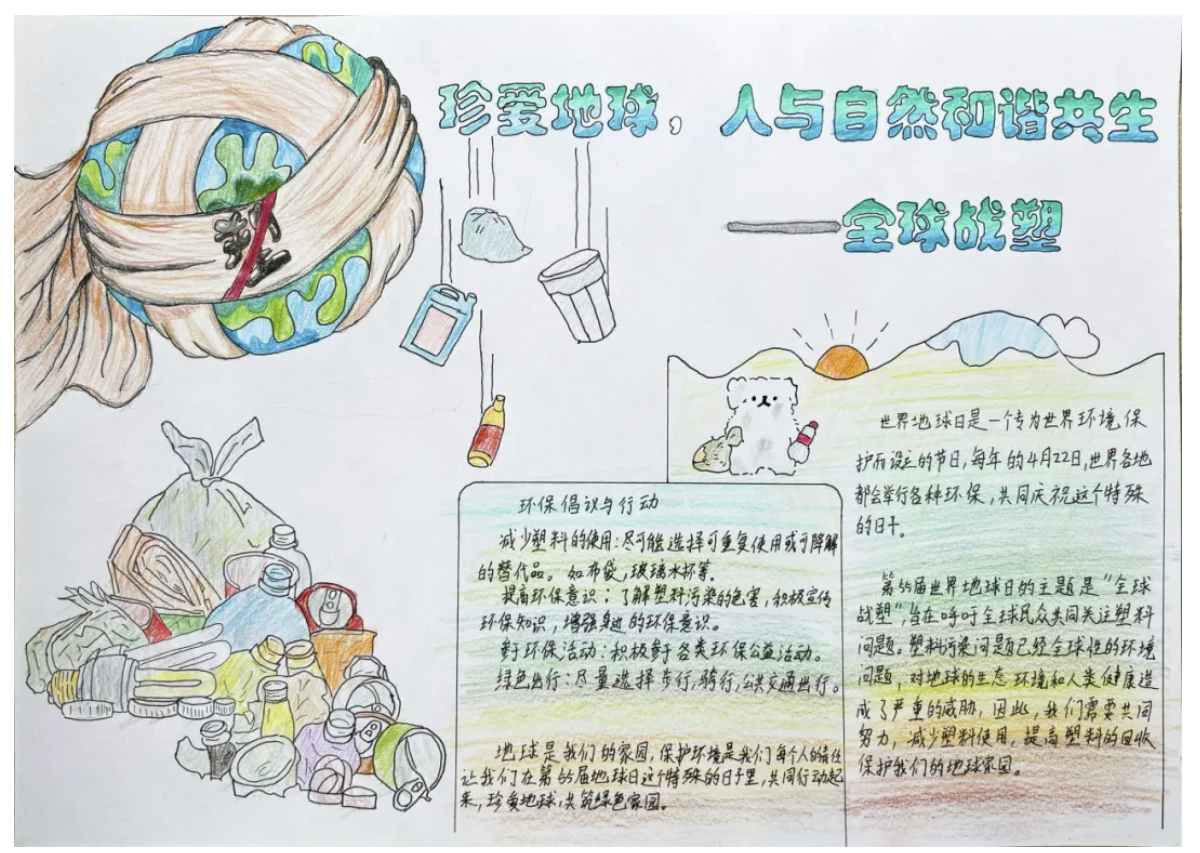 珍爱地球，人与自然和谐共生
——全球战塑
塑
世界地球日是一个专为世界环境保
护而设立的节日,每年的4月22日,世界各地
都会举行各种环保,共同庆祝这个特殊
的日子。
第55届世界地球日的主题是“全球
战塑”,旨在呼吁全球民众共同关注塑料
问题。塑料污染问题已经全球性的环境
问题，对地球的生态环境和人类健康造
成了严重的威胁，因此，我们需要共同
努力，减少塑料使用，提高塑料的回收
保护我们的地球家园。
环保倡议与行动
减少塑料的使用:尽可能选择可重复使用或可降解
的替代品。如布袋,玻璃水杯等.
提高环保意识：了解塑料污染的危害,积极宣传
环保知识，增强身边的环保意识。
参于环保活动：积极参于各类环保公益活动。
绿色出行:尽量选择步行,骑行,公共交通出行。
地球是我们的家园,保护环境是我们每个人的责任
让我们在第55届地球日这个特殊的日子里,共同行动起
来,珍爱地球,共筑绿色家园。